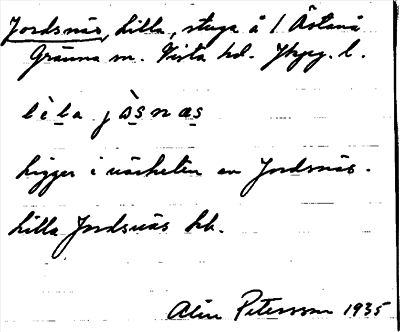 Jordsnäs, Lilla, stuga å 1 Östanå
Gränna sn. Vista hd. Jkpg. l.
lè la jòsnas
Ligger i närheten av Jordsnäs.
Lilla Jordsnäs hb.
Alice Petersson 1935